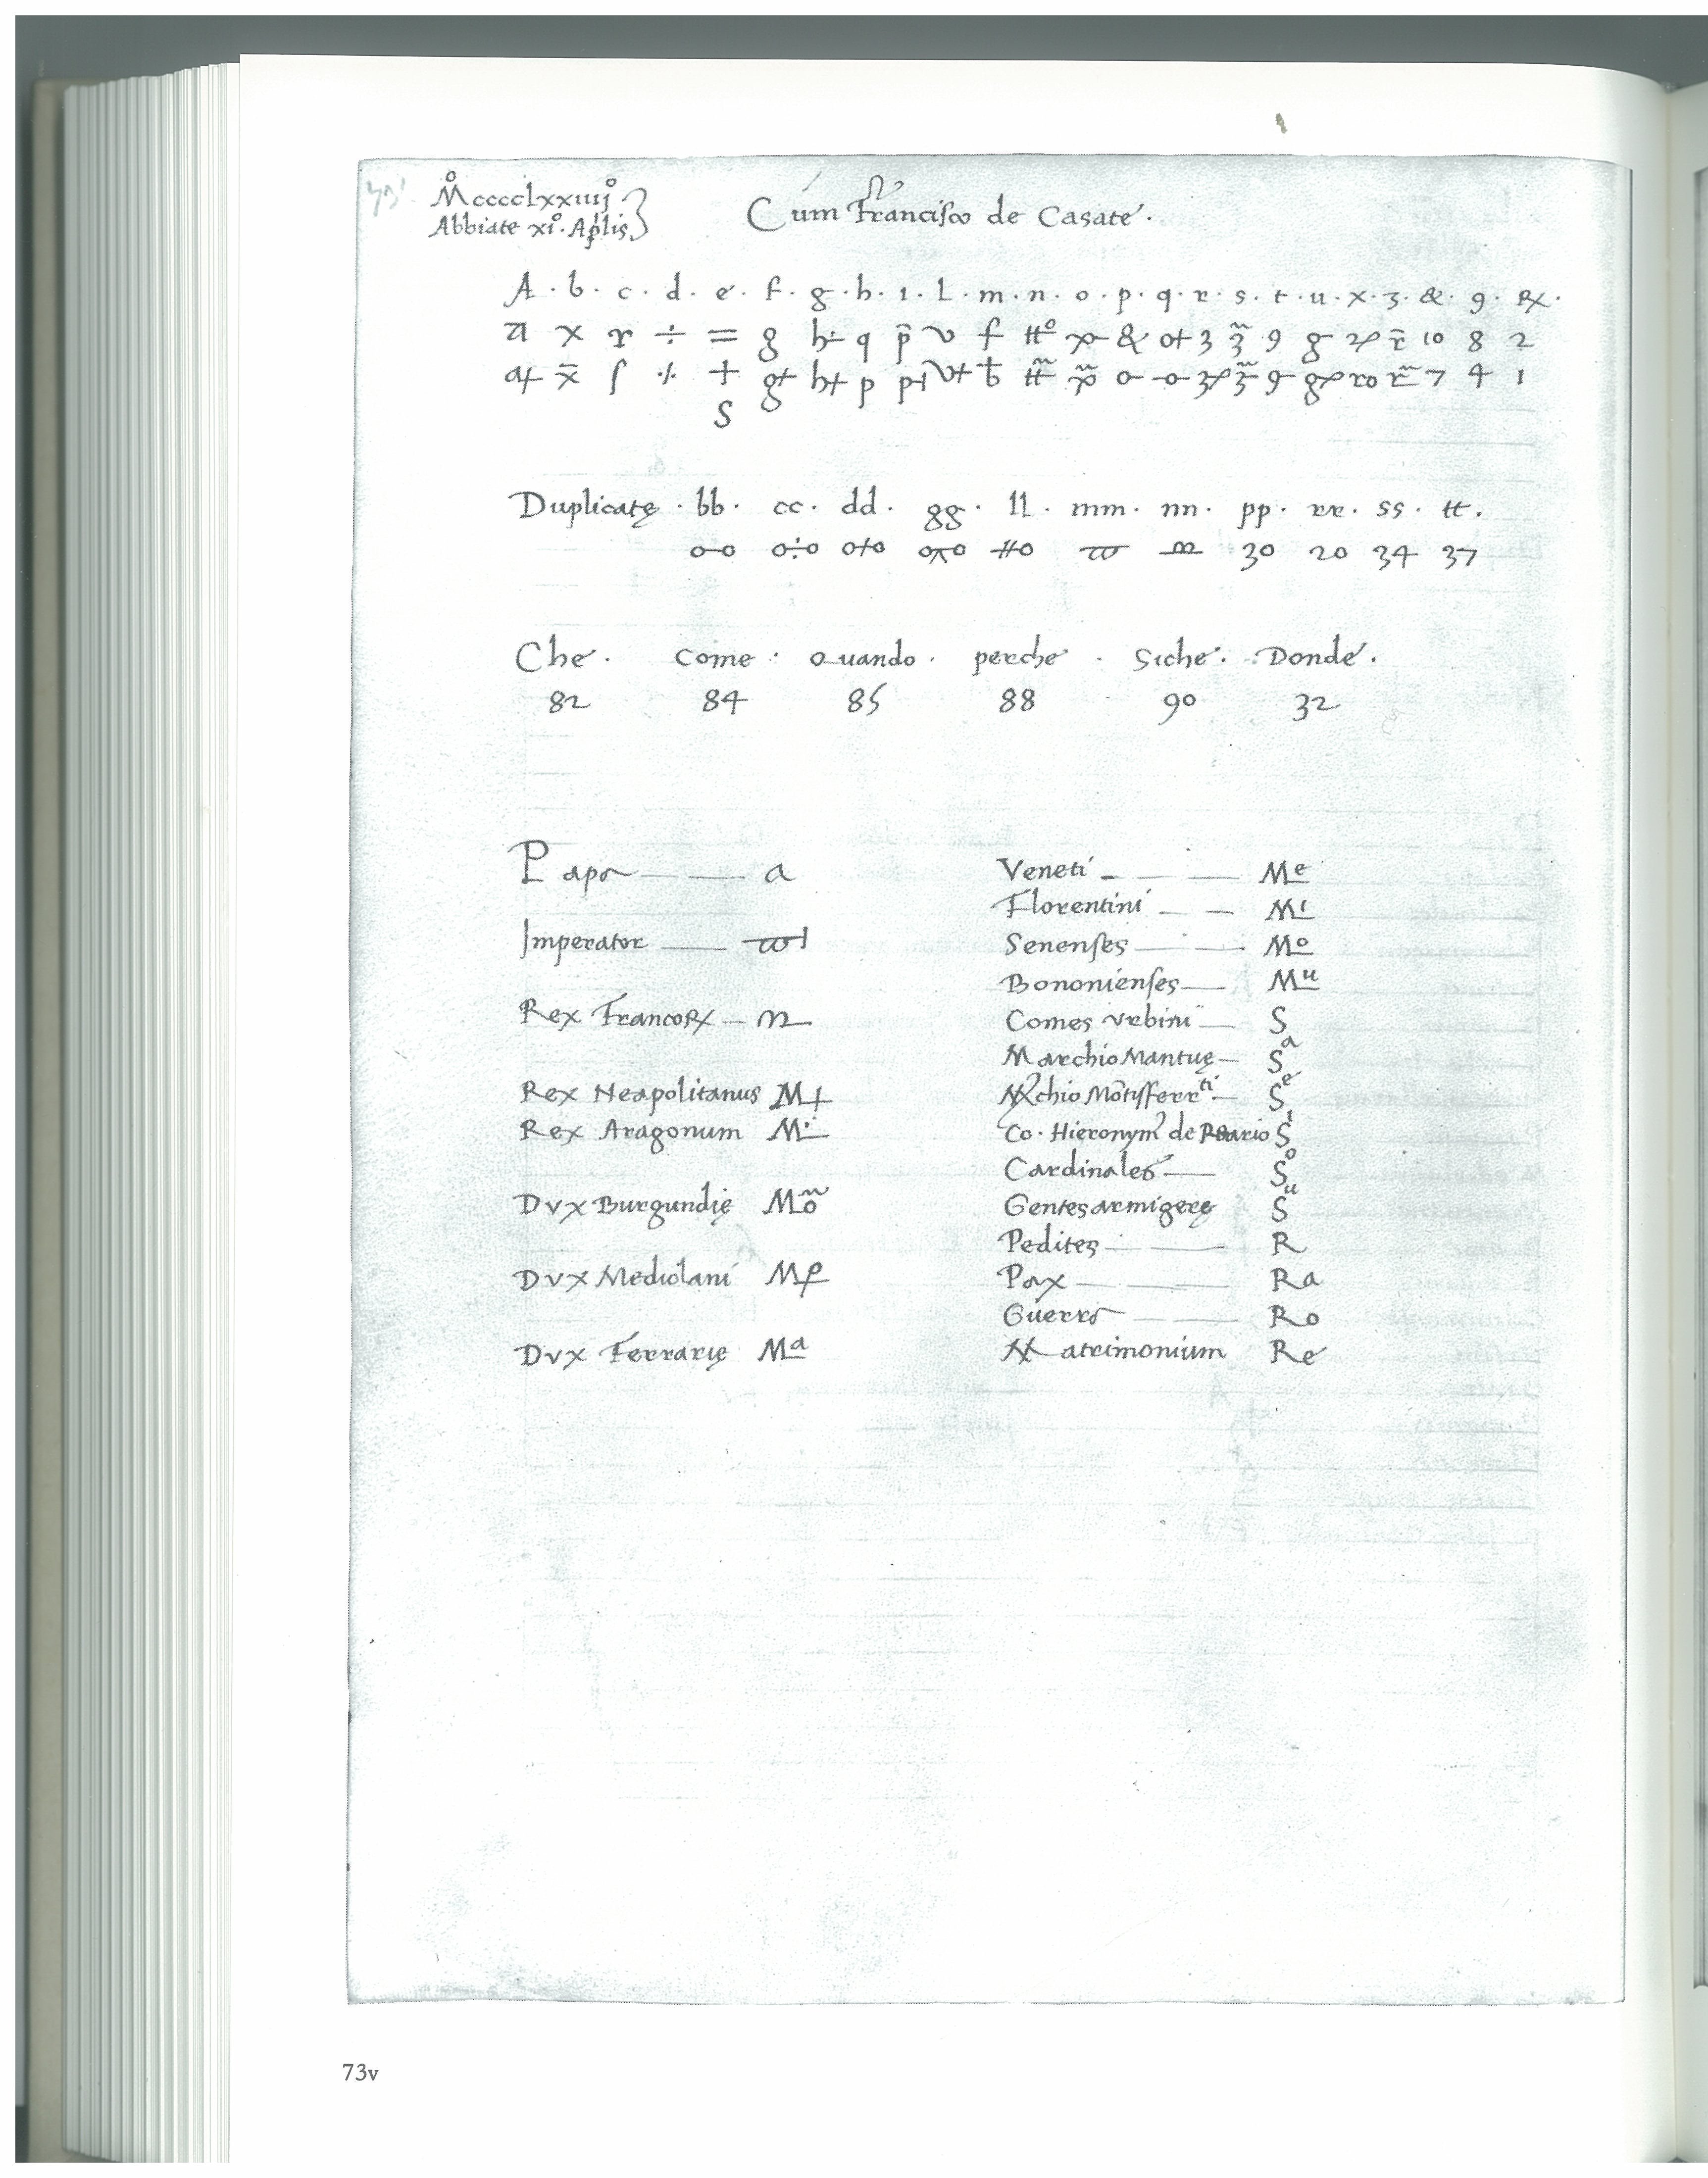 M̊cccclxxiiijº
Abbiate xiº. Aplis
Cum Francisco de Casate.
A. b. c. d. e. f. g. h. i. l. m. n. o. p. q. r. s. t. u. x. z. &. 9. ℞.
ā x r ÷ = g h q p̄ v f & 3 9 g r̄ 10 8 2
a+ x̄ ſ ·/· + g+ h+ p v+ o- -o- 9- 7 4 1
S
Duplicatę. bb. cc. dd. gg. ll. mm. nn. pp. rr. ss. tt.
o-o o÷o o+o 30 20 34 37
Che. Come. Quando. perche. Siche. Donde.
82 84 85 88 90 32
Papa a
Imperator
Rex Franco℞
Rex Neapolitanus M+
Rex Aragonum M
Dvx Burgundię M
Dvx Mediolani M
Dvx Ferrarię Mᵃ
Veneti Mᵉ
Florentini Mⁱ
Senenses Mᵒ
Bononienses Mᵘ
Comes Urbini S
Marchio Mantuę Sᵃ
Mchio Mōtisferrᵗⁱ Sᵉ
Co. Hieronym9 de Sⁱ
Cardinales Sᵒ
Gentes armigerę Sᵘ
Pedites R
Pax Ra
Guerra Ro
Matrimonium Re
73v